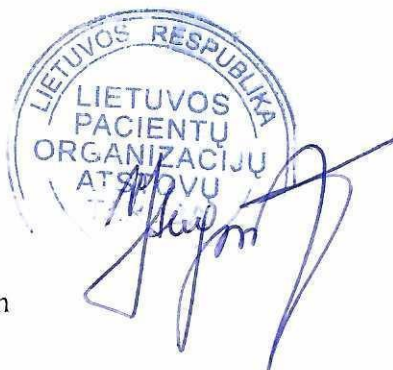 LIETUVOS RESPUBLIKA
LIETUVOS
PACIENTŲ
ORGANIZACIJŲ
ATSTOVŲ